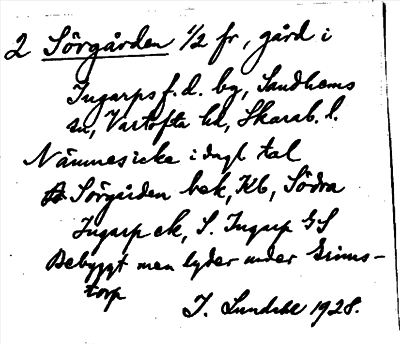 2 Sörgården 1/2 fr, gård i
Ingarps f.d. by, Sandhems
sn, Vartofta hd, Skarab. l.
Nämnes icke i dagl tal
Sörgården bek, Kb, Södra
Ingarp ek, S. Ingarp GS
Bebyggt men lyder under Grims-
torp
J. Lundahl 1928.